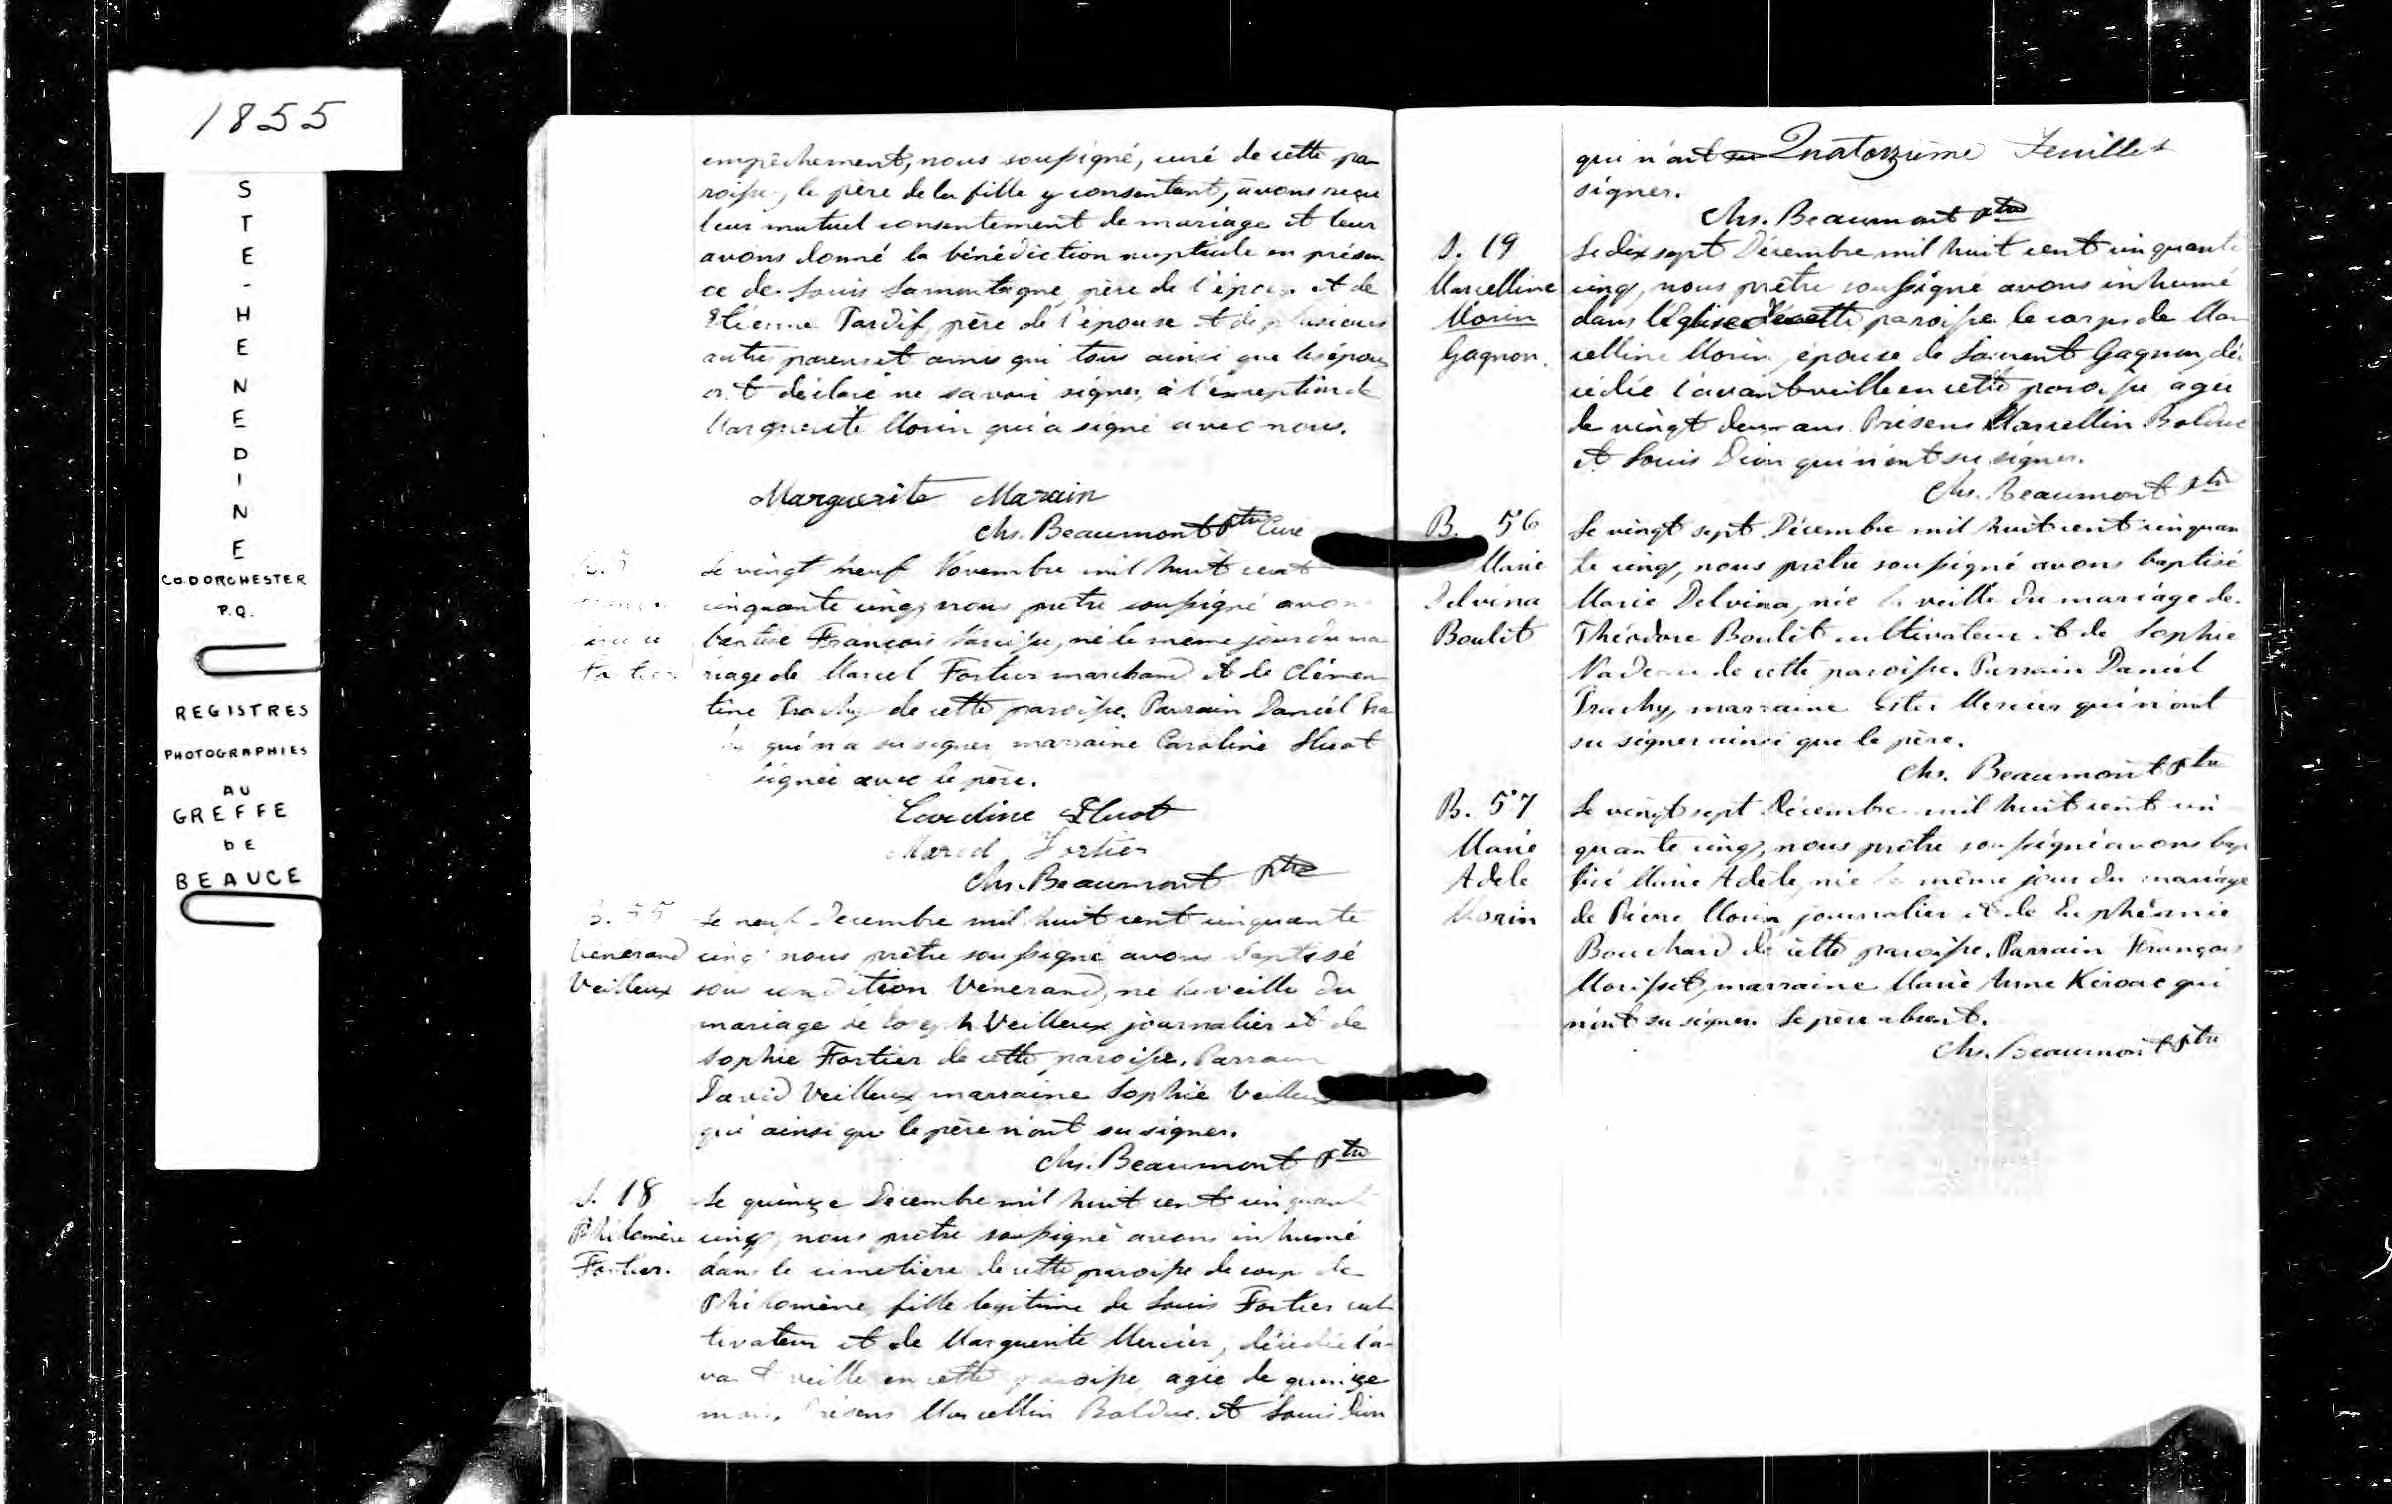 1855
STE-HENEDINE
CO. DORCHESTER
P.Q.
REGISTRES
PHOTOGRAPHIES
AU
GREFFE
DE
BEAUCE
empêchement, nous soussigné, curé de cette pa
roisse, le père de la fille y consentant, avons reçu
leur mutuel consentement de mariage et leur
avons donné la bénédiction nuptiale en présen
ce de Louis Lamontagne père de l'époux et de
Etienne Tardif, père de l'épouse et de plusieurs
autre parens et amis qui tous ainsi que les époux
ont déclaré ne savoir signer, à l'exception de
Marguerite Morin qui a signé avec nous.
Marguerite Marain
Chs. Beaumont Ptre Curé
Le vingt neuf Novembre mil huit cent
cinquante cinq, nous prêtre soussigné avons
baptisé François, né le meme jour du ma
riage de Marcel Fortier marchand et de Clémen
tine Trachy de cette paroisse. Parrain Daniél Tra
qui n'a su signer marraine Caroline Huot
signée avec le père.
Caroline Huot
Marcel Fortier
Chs. Beaumont Ptre
B. 55
Vénérand
Veilleux
Le neuf Decembre mil huit cent cinquante
cinq nous prêtre soussigné avons baptisé
sous condition Vénérand, né la veille du
mariage de Joseph Veilleux journalier et de
Sophie Fortier de cette paroisse. Parrain
David Veilleux, marraine Sophie Veilleux
qui ainsi que le père n'ont su signer.
Chs. Beaumont Ptre
S. 18
Philomène
Fortier.
Le quinze Décembre mil huit cent cinquante
cinq, nous prêtre soussigné avons inhumé
dans le cimetière de cette paroisse le corps de
Philomène, fille legitime de Louis Fortier cul
tivateur et de Marguerite Mercier, décédée l'a-
vant veille en cette paroisse agée de quinze
mois. Présens Marcellin Bolduc et Louis Dion
Quatorzième Feuillet
qui n'ont su
signer.
Chs. Beaumont Ptre
S. 19
Marcelline
Morin
Gagnon.
Le dix sept Décembre mil huit cent cinquante
cinq, nous prêtre soussigné avons inhumé
dans l'église de cette paroisse le corps de Mar
celline Morin, épouse de Laurent Gagnon, dé
cédée l'avant veille en cette paroisse agée
de vingt deux ans. Présens Marcellin Bolduc
et Louis Dion qui n'ont su signer.
Chs. Beaumont Ptre
B. 56
Marie
Delvina
Boulét
Le vingt sept Décembre mil huit cent cinquan
te cinq, nous prêtre soussigné avons baptisé
Marie Delvina, née la veille du mariage de
Théodore Boulét cultivateur et de Sophie
Nadeau de cette paroisse. Parrain Daniél
Trachy, marraine Ester Mercier qui n'ont
su signer ainsi que le père.
Chs. Beaumont Ptre
B. 57
Marie
Adèle
Morin
Le vingt sept Décembre mil huit cent cin
quante cinq, nous prêtre soussigné avons bap
tisé Marie Adèle, née le même jour du mariage
de Pierre Morin journalier et de Euphémie
Bouchard de cette paroisse. Parrain François
Morisset, marraine Marie Anne Kéroac qui
n'ont su signer. Le père absent.
Chs. Beaumont Ptre